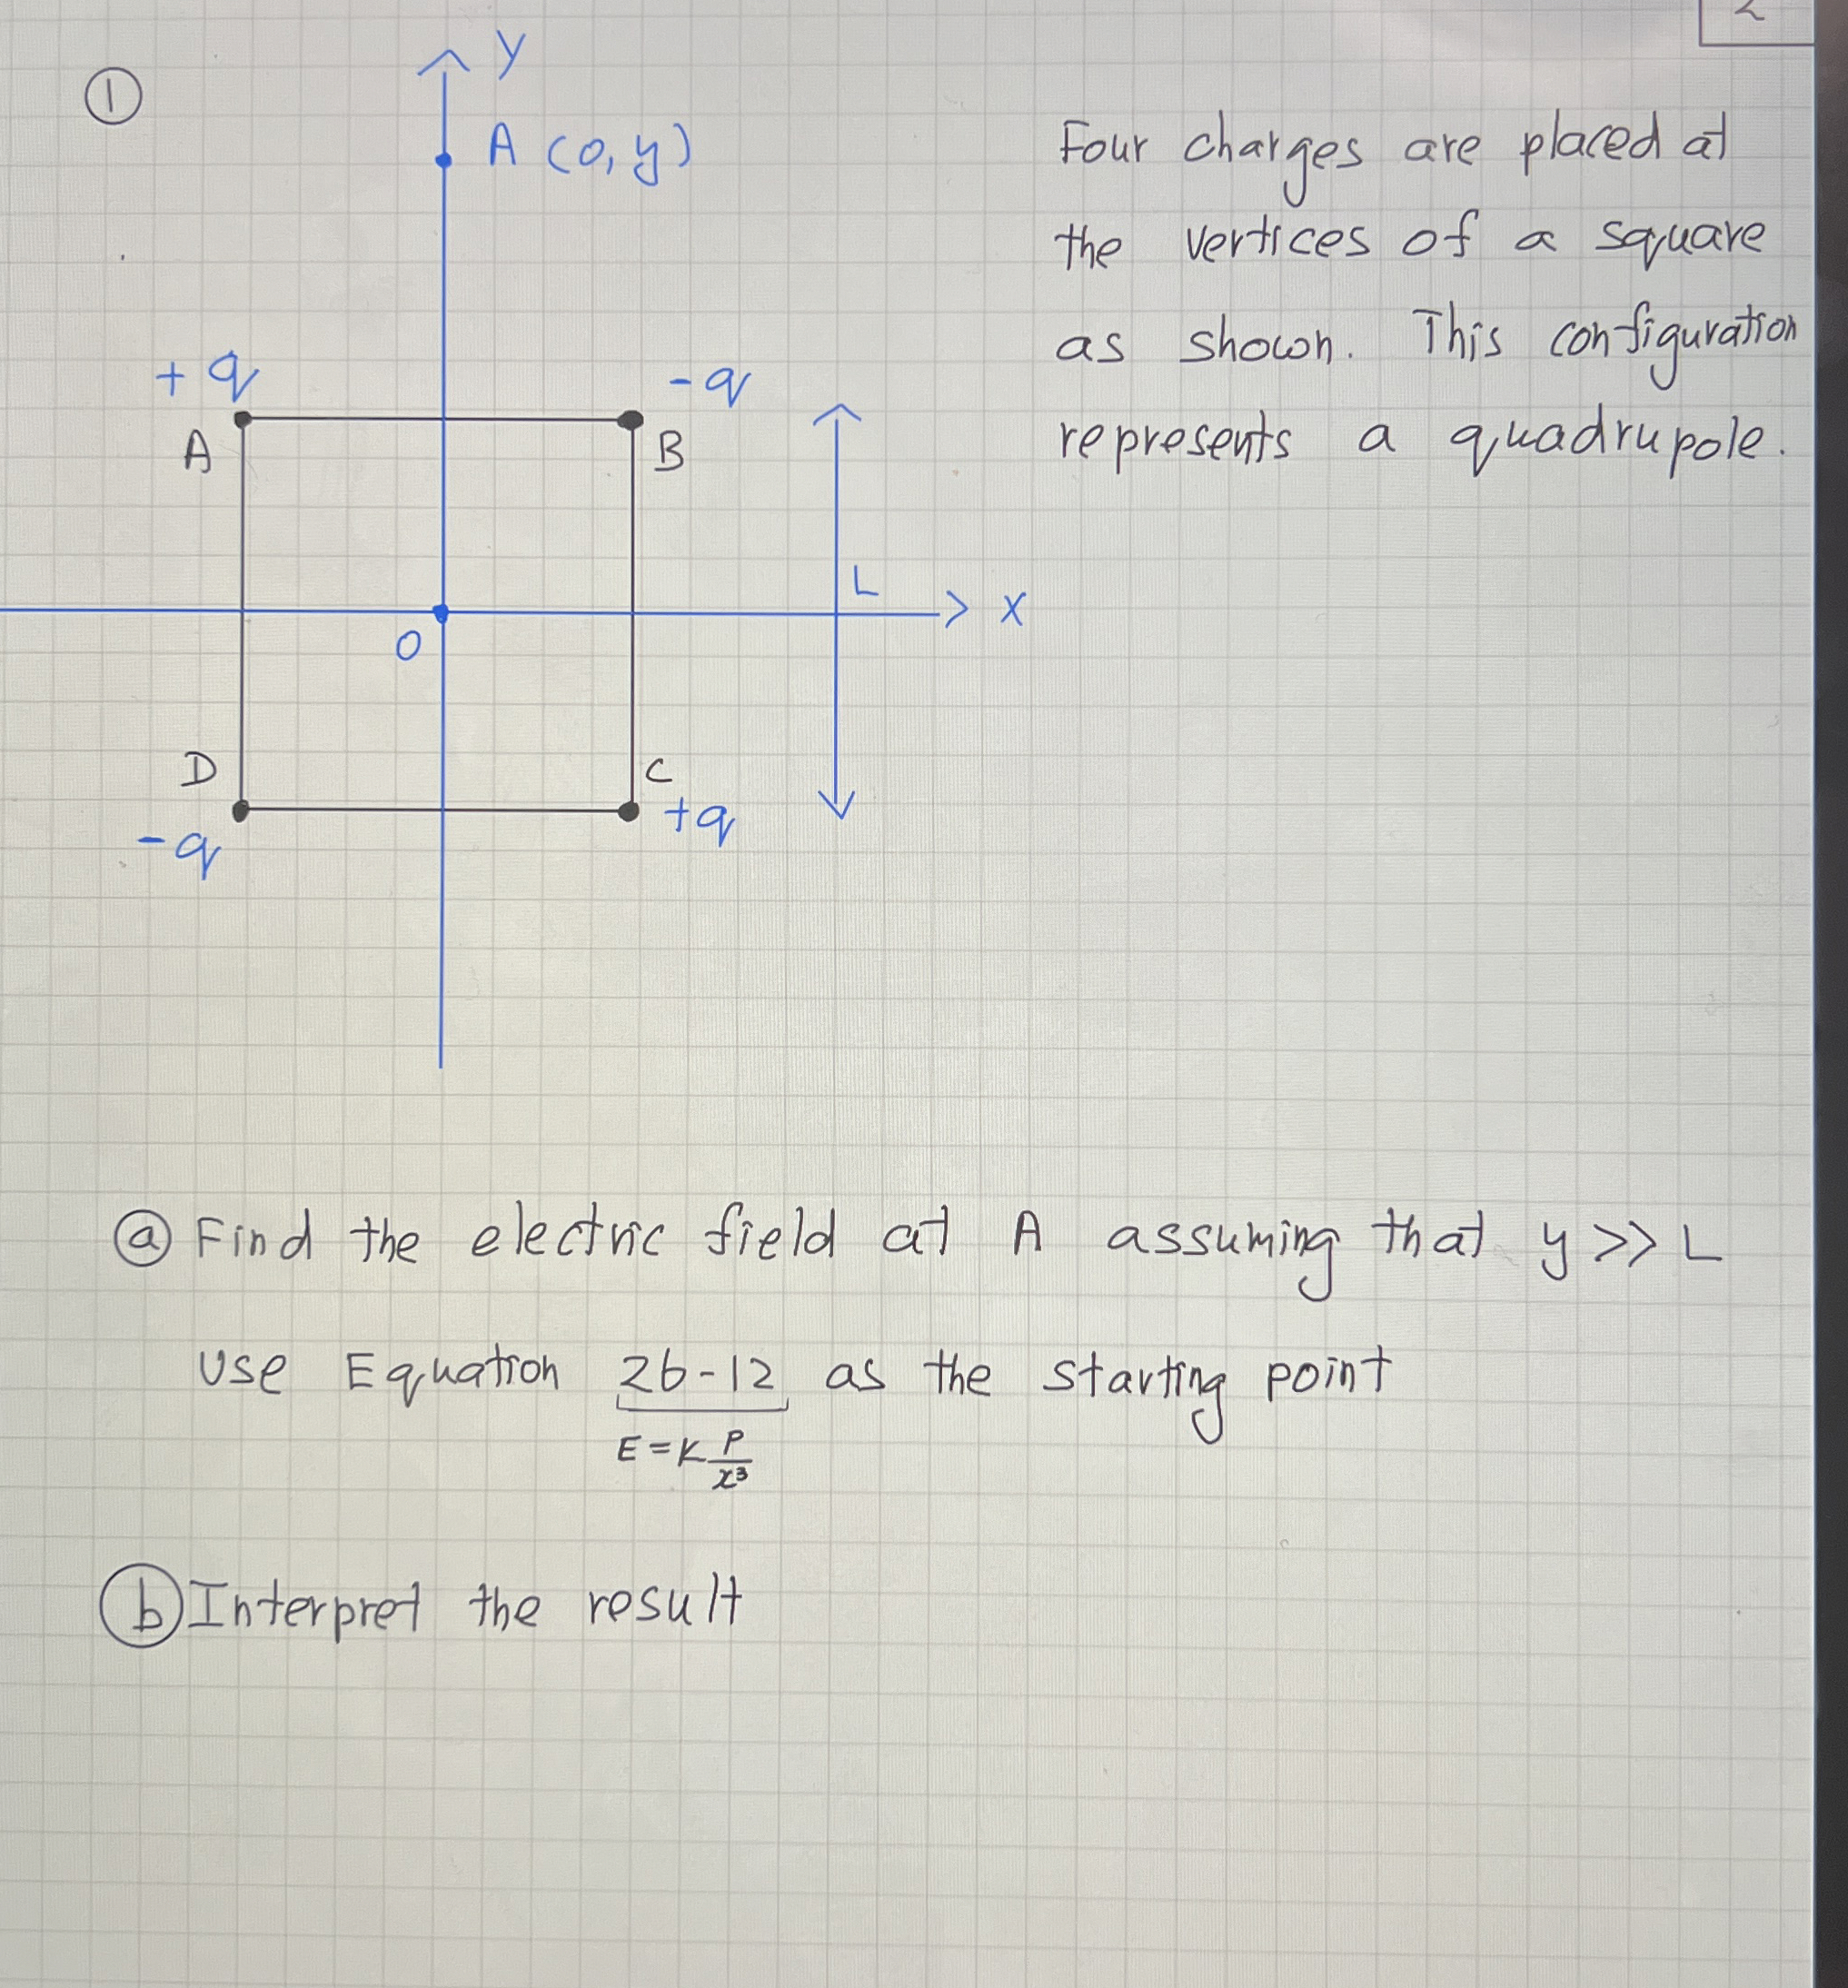 2
①
y
A (0, y)
Four charges are placed at
the vertices of a square
as shown. This configuration
represents a quadrupole.
+q
-q
A
B
L
x
O
D
C
-q
+q
ⓐ Find the electric field at A assuming that y >> L
Use Equation 26-12 as the starting point
E = K P/x³
ⓑ Interpret the result